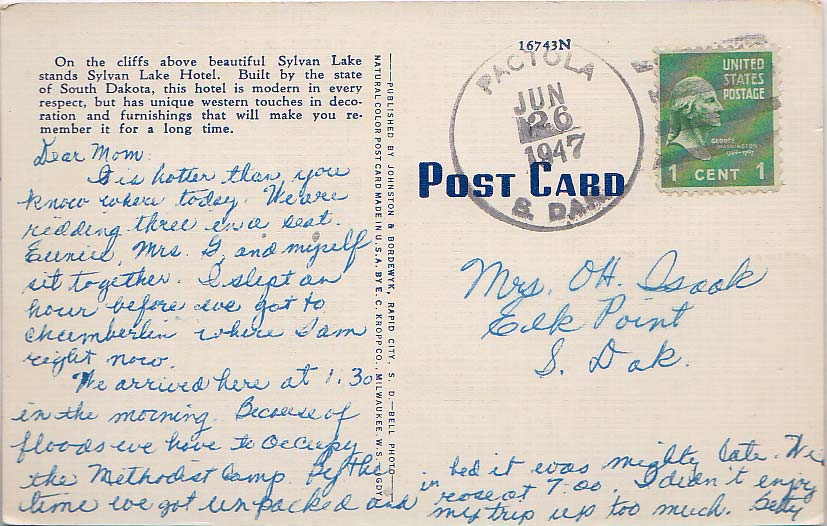 On the cliffs above beautiful Sylvan Lake
stands Sylvan Lake Hotel. Built by the state
of South Dakota, this hotel is modern in every
respect, but has unique western touches in deco-
ration and furnishings that will make you re-
member it for a long time.
Dear Mom:
It is hotter than, you
know where today. We are
ridding three in a seat.
Eunice, Mrs. G, and myself
sit together. I slept an
hour before we got to
Chamberlin where I am
right now.
We arrived here at 1:30
in the morning. Because of
floods we have to occupy
the Methodist Camp. By the
time we got unpacked and
in bed it was mighty late. We
rose at 7:00. I didn't enjoy
my trip up too much. Betty
PUBLISHED BY JOHNSTON & BORDEWYK, RAPID CITY, S. D.—BELL PHOTO
NATURAL COLOR POST CARD MADE IN U.S.A. BY E. C. KROPP CO., MILWAUKEE, WIS.
16743N
PACTOLA
JUN
26
1947
S. DAK.
POST CARD
UNITED
STATES
POSTAGE
GEORGE
WASHINGTON
1 CENT 1
Mrs. OH. Isaak
Elk Point
S. Dak.